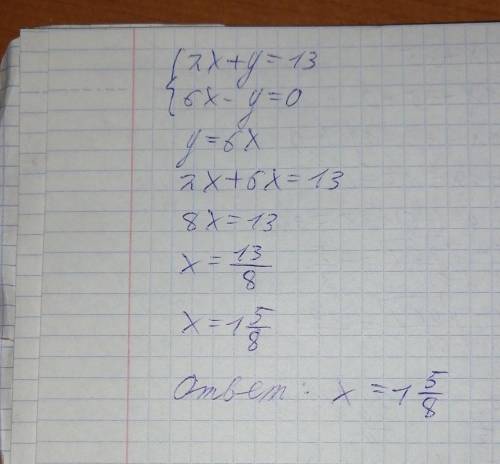 {2x+y=13
{6x-y=0
y=6x
2x+6x=13
8x=13
x=13/8
x=1 5/8
Ответ: x=1 5/8